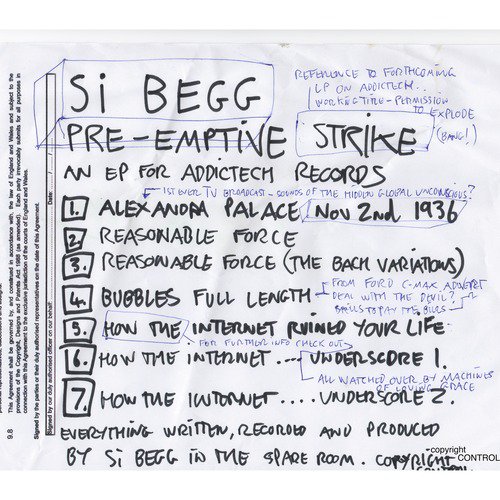 Si BEGG
REFERENCE TO FORTHCOMING
LP ON ADDICTECH...
WORKING TITLE - PERMISSION
TO EXPLODE
(BANG!)
PRE-EMPTIVE STRIKE
AN EP FOR ADDICTECH RECORDS
1ST EVER TV BROADCAST - SOUNDS OF THE HIDDEN GLOBAL UNCONSCIOUS?
1. ALEXANDRA PALACE Nov 2nd 1936
2. REASONABLE FORCE
3. REASONABLE FORCE (THE BACH VARIATIONS)
4. BUBBLES FULL LENGTH
FROM FORD C-MAX ADVERT
DEAL WITH THE DEVIL?
BILLS TO PAY THE BILLS
5. HOW THE INTERNET RUINED YOUR LIFE
FOR FURTHER INFO CHECK OUT
6. HOW THE INTERNET .... UNDERSCORE 1.
ALL WATCHED OVER BY MACHINES
OF LOVING GRACE
7. HOW THE INTERNET .... UNDERSCORE 2.
EVERYTHING WRITTEN, RECORDED AND PRODUCED
BY Si BEGG IN THE SPARE ROOM. COPYRIGHT
CONTROL
•copyright
CONTROL
9.8
This Agreement shall be governed by, and construed in accordance with, the law of England and Wales and subject to the
provisions of the Copyright, Designs and Patents Act 1988 (as amended). Each party irrevocably submits for all purposes in
connection with this Agreement to the exclusive jurisdiction of the courts of England and Wales.
Signed by the parties or their duly authorised representatives on the date of this Agreement.
Signed by our duly authorised officer on our behalf:
Date: